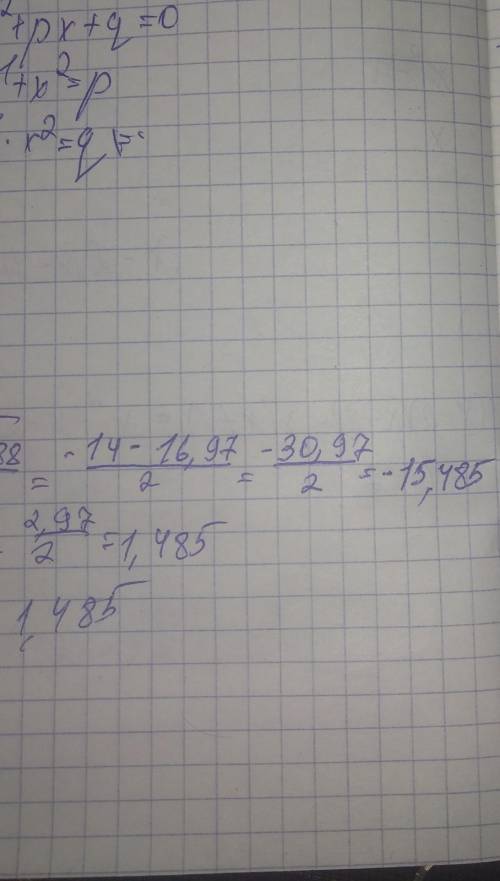 ²+px+q=0
¹+x²=p
· x²=q
38 = -14 - 16,97 / 2 = -30,97 / 2 = -15,485
2,97 / 2 = 1,485
1,485